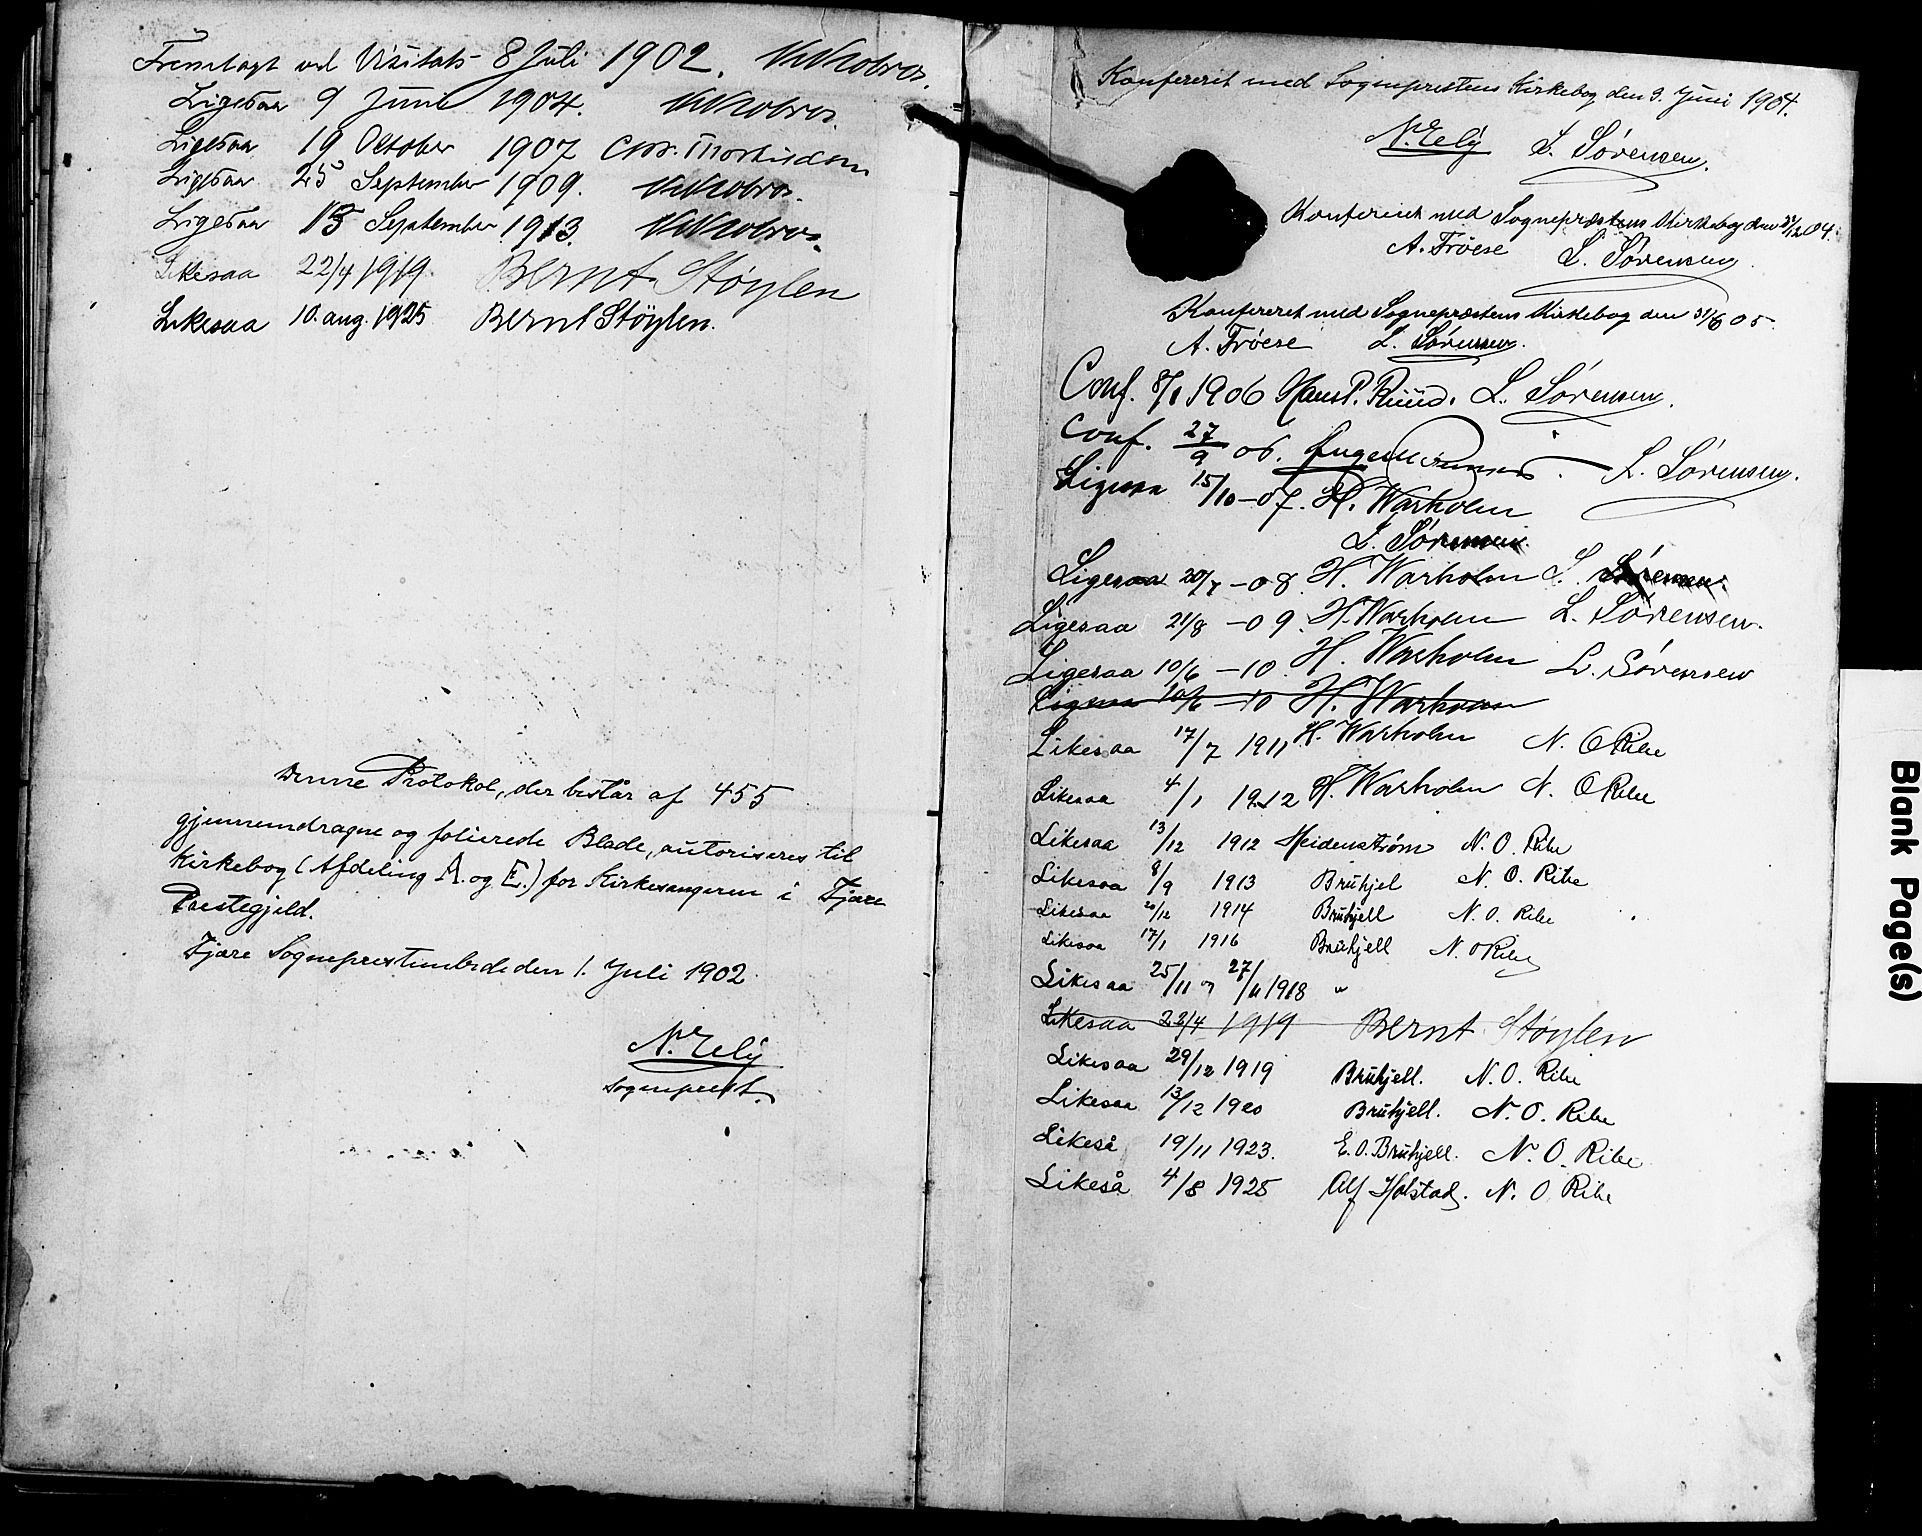 Fremlagt ved Visitats 8 Juli 1902.
Ligesaa 9 Juni 1904.
Ligesaa 19 Oktober 1907
Ligesaa 25 September 1909.
Ligesaa 15 September 1913.
Likesaa 22/4 1919. Bernt Støylen
Likesaa 10. aug. 1925 Bernt Støylen.
Denne Protokol, der består af 455
gjennemdragne og folierede Blade, autoriseres til
Kirkebog (Afdeling A. og E.) for Kirkesangeren i Fjære
Præstegjeld.
Fjære Sogneprestembede den 1. Juli 1902.
sogneprest.
Konfereret med Sogneprestens Kirkebog den 9. Juni 1904.
L. Sørensen.
Konfereret med Sognepræstens Kirkebog den 31/12 04.
A. Trøese L. Sørensen.
Konfereret med Sognepræstens Kirkebog den 31/6 05.
A. Trøese L. Sørensen.
Conf. 8/1 1906 Hans P. Ruud. L. Sørensen.
Conf. 27/9 06. L. Sørensen.
Ligesaa 15/10-07. H. Warholm
L. Sørensen.
Ligesaa 20/7-08 H. Warholm L. Sørensen.
Ligesaa 21/8-09. H. Warholm L. Sørensen.
Ligesaa 10/6-10. H. Warholm L. Sørensen
Ligesaa 10/6-10 H. Warholm
Likesaa 17/7 1911 H. Warholm N. O Ribe
Likesaa 4/1 1912 H. Warholm N. O Ribe
Likesaa 13/12 1912 Heidenstrøm N. O. Ribe
Likesaa 8/9 1913 Bruhjel N. O. Ribe
Likesaa 20/12 1914 Bruhjell N. O. Ribe
Likesaa 17/1 1916 Bruhjell N. O Ribe
Likesaa 25/11 og 27/11 1918 "
Likesaa 22/4 1919 Bernt Støylen
Likesaa 29/12 1919 Bruhjell. N. O. Ribe
Likesaa 13/12 1920 Bruhjell. N. O. Ribe
Likeså 19/11 1923. E. O. Bruhjell. N. O. Ribe
Likeså 4/8 1925 Alf Holstad. N. O. Ribe
Blank Page(s)